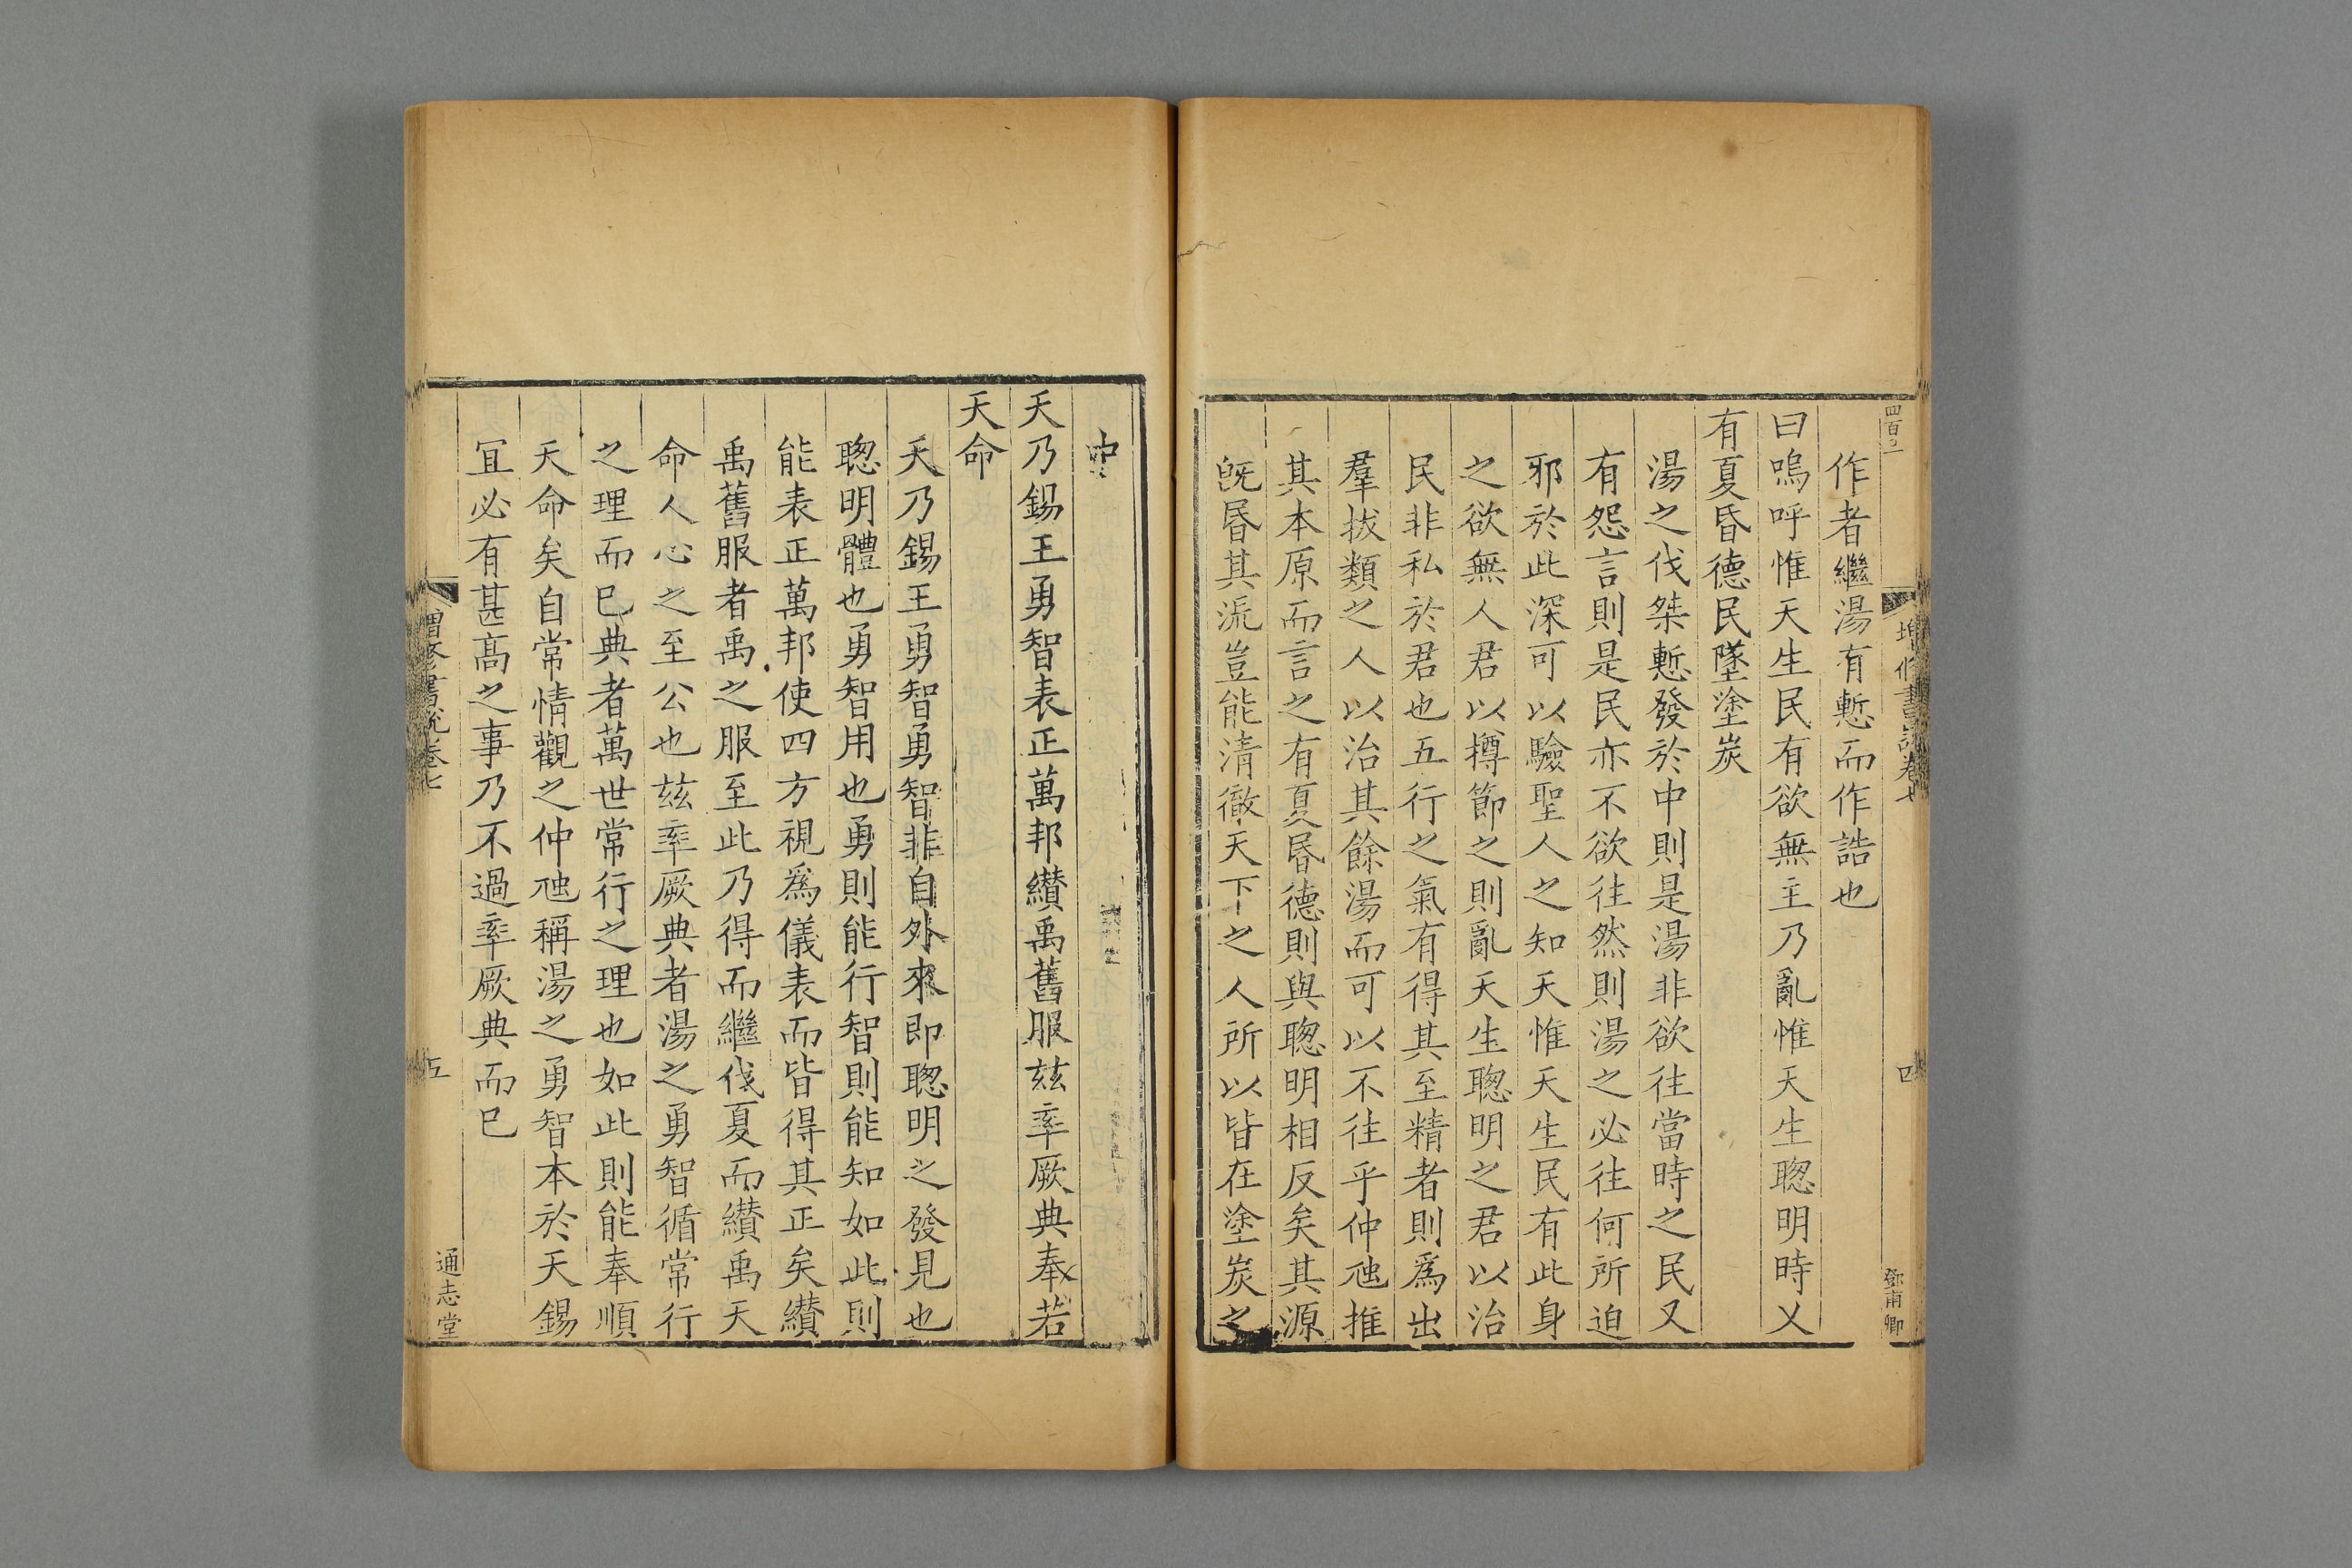 作者繼湯有慙而作誥也
曰嗚呼惟天生民有欲無主乃亂惟天生聦明時乂
有夏昏德民墜塗炭
湯之伐桀慙發於中則是湯非欲往當時之民又
有怨言則是民亦不欲往然則湯之必往何所迫
邪於此深可以驗聖人之知天惟天生民有此身
之欲無人君以撙節之則亂天生聦明之君以治
民非私於君也五行之氣有得其至精者則爲出
羣拔類之人以治其餘湯而可以不往乎仲虺推
其本原而言之有夏昬德則與聦明相反矣其源
旣昬其流豈能清徹天下之人所以皆在塗炭之
增修書說卷七
四
鄧甫卿
中
天乃錫王勇智表正萬邦纘禹舊服兹率厥典奉若
天命
天乃錫王勇智勇智非自外來即聦明之發見也
聦明體也勇智用也勇則能行智則能知如此則
能表正萬邦使四方視爲儀表而皆得其正矣纘
禹舊服者禹之服至此乃得而繼伐夏而纘禹天
命人心之至公也兹率厥典者湯之勇智循常行
之理而已典者萬世常行之理也如此則能奉順
天命矣自常情觀之仲虺稱湯之勇智本於天錫
宜必有甚高之事乃不過率厥典而已
增修書說卷七
五
通志堂